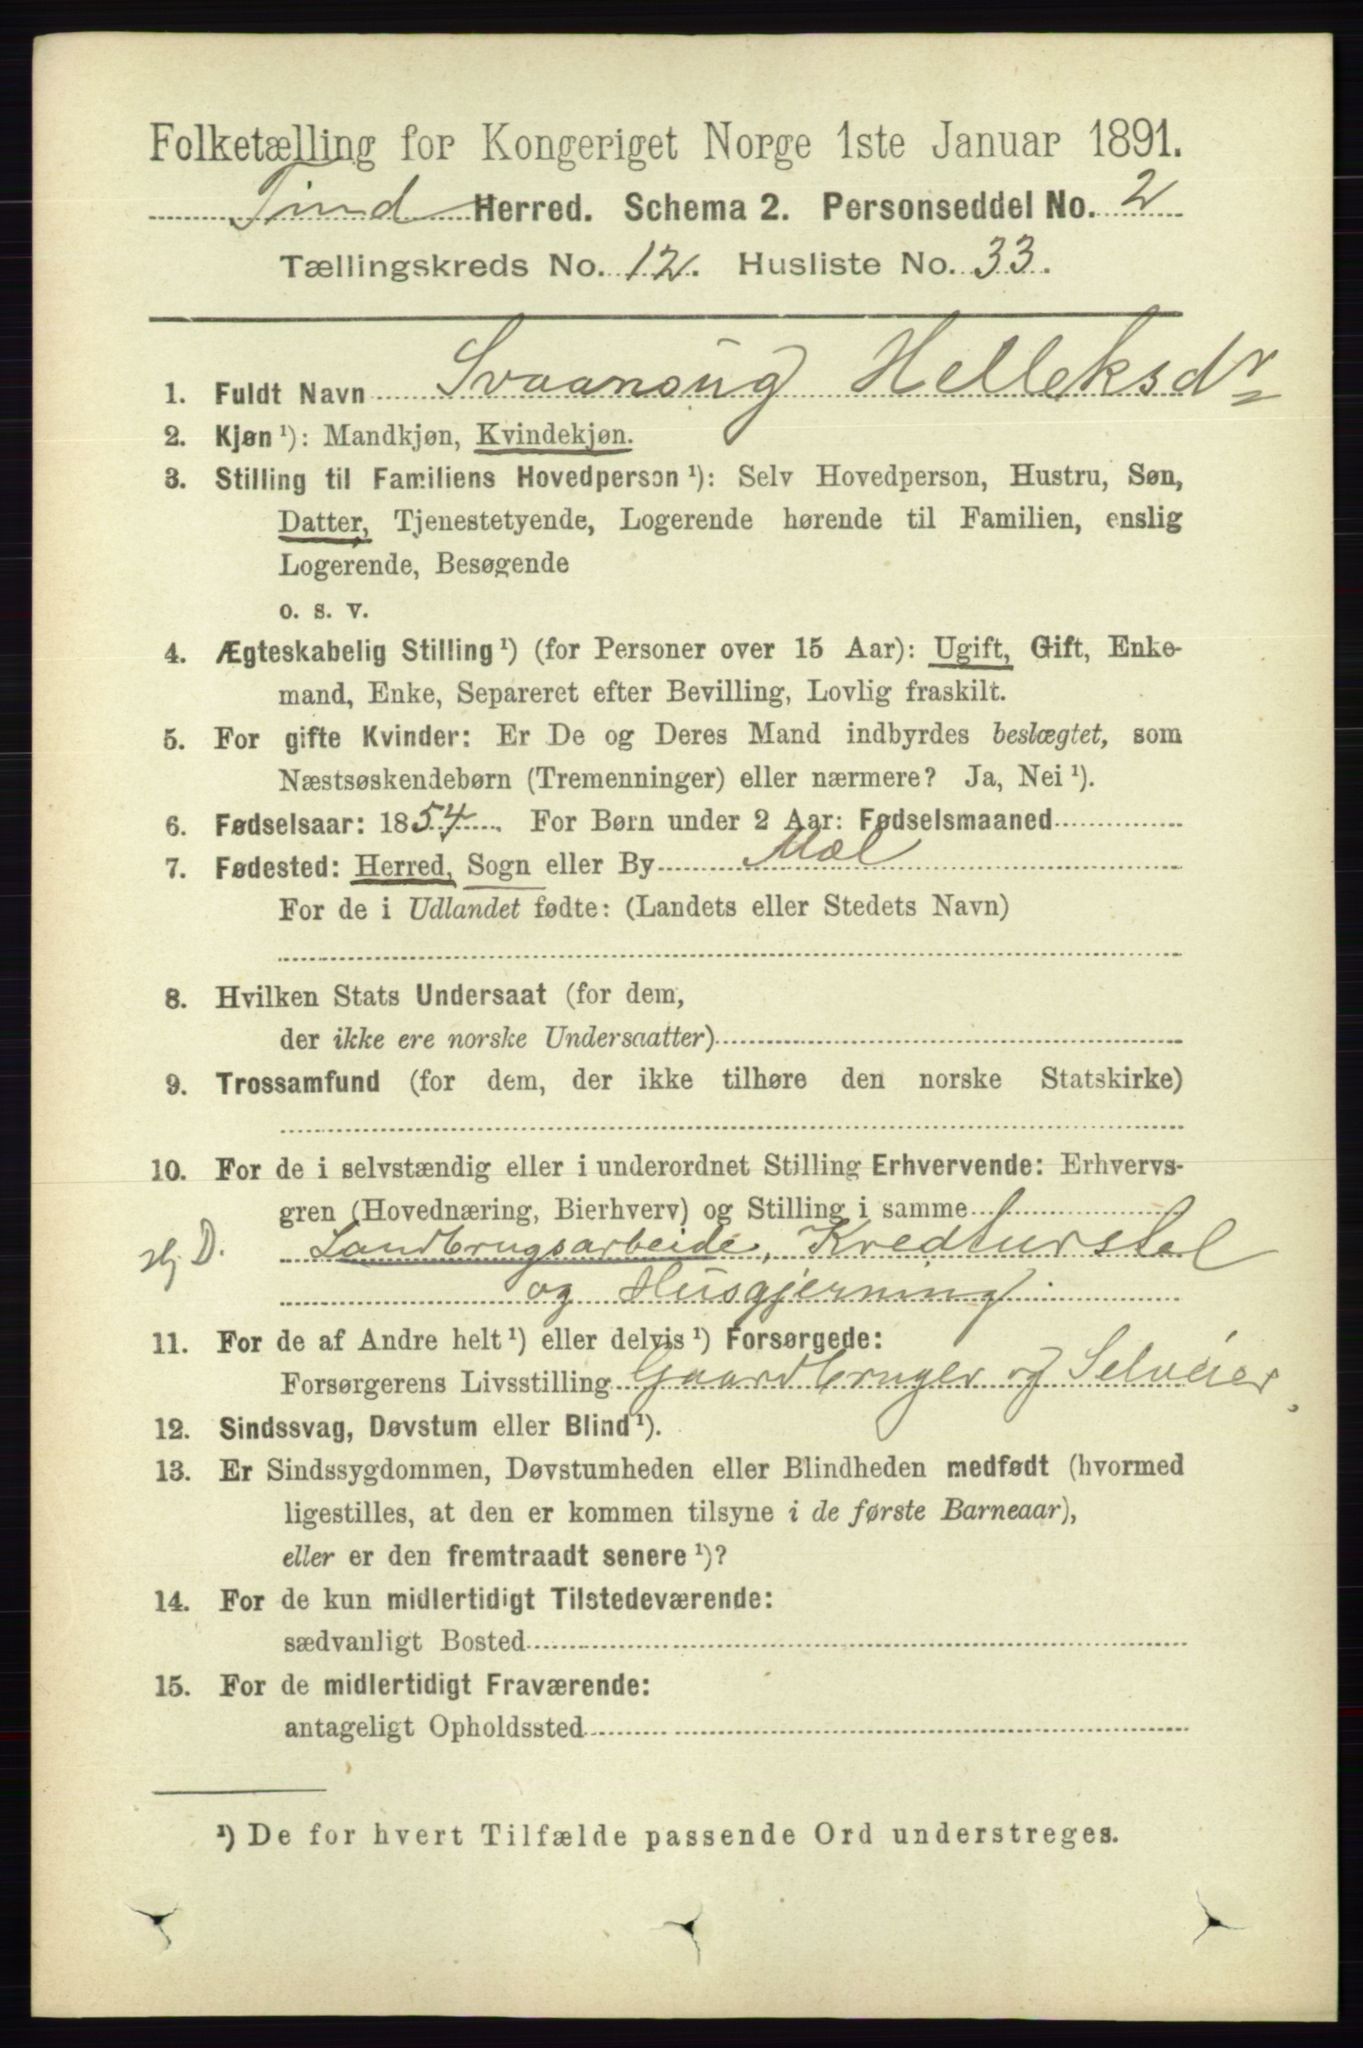 Folketælling for Kongeriget Norge 1ste Januar 1891.
Tind Herred. Schema 2. Personseddel No. 2
Tællingskreds No. 12. Husliste No. 33.
1. Fuldt Navn Svaanoug Helleksdr
2. Kjøn ¹): Mandkjøn, Kvindekjøn.
3. Stilling til Familiens Hovedperson ¹): Selv Hovedperson, Hustru, Søn,
Datter, Tjenestetyende, Logerende hørende til Familien, enslig
Logerende, Besøgende
o. s. v.
4. Ægteskabelig Stilling ¹) (for Personer over 15 Aar): Ugift, Gift, Enke-
mand, Enke, Separeret efter Bevilling, Lovlig fraskilt.
5. For gifte Kvinder: Er De og Deres Mand indbyrdes beslægtet, som
Næstsøskendebørn (Tremenninger) eller nærmere? Ja, Nei ¹).
6. Fødselsaar: 1854. For Børn under 2 Aar: Fødselsmaaned
7. Fødested: Herred, Sogn eller By Mæl
For de i Udlandet fødte: (Landets eller Stedets Navn)
8. Hvilken Stats Undersaat (for dem,
der ikke ere norske Undersaatter)
9. Trossamfund (for dem, der ikke tilhøre den norske Statskirke)
10. For de i selvstændig eller i underordnet Stilling Erhvervende: Erhvervs-
gren (Hovednæring, Bierhverv) og Stilling i samme
Hj D. Landbrugsarbeide, Kredturstel
og Husgjerning.
11. For de af Andre helt ¹) eller delvis ¹) Forsørgede:
Forsørgerens Livsstilling Gaardbruger og Selveier.
12. Sindssvag, Døvstum eller Blind ¹).
13. Er Sindssygdommen, Døvstumheden eller Blindheden medfødt (hvormed
ligestilles, at den er kommen tilsyne i de første Barneaar),
eller er den fremtraadt senere ¹)?
14. For de kun midlertidigt Tilstedeværende:
sædvanligt Bosted
15. For de midlertidigt Fraværende:
antageligt Opholdssted
¹) De for hvert Tilfælde passende Ord understreges.